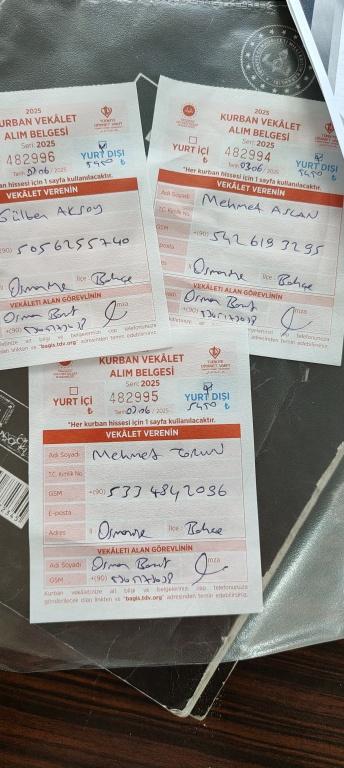 2025
KURBAN VEKÂLET
ALIM BELGESİ
Seri: 2025
482996
YURT DIŞI
₺
5450
Tarih: 02.06/2025
kurban hissesi için 1 sayfa kullanılacaktır.
VEKÂLET VERENİN
Gülben Aksoy
(90) 505 625 57 40
Osmaniye İlçe: Bahçe
VEKÂLETİ ALAN GÖREVLİNİN
Osman
imza
+(90)
2025
KURBAN VEKÂLET
ALIM BELGESİ
Seri: 2025
YURT İÇİ
₺
482994
YURT DIŞI
₺
5450
Tarih: 02.06/2025
*Her kurban hissesi için 1 sayfa kullanılacaktır.
VEKÂLET VERENİN
Adı Soyadı Mehmet Ascan
T.C. Kimlik No.
GSM +(90) 542 619 3295
posta
İl Osmaniye İlçe: Bahçe
VEKÂLETİ ALAN GÖREVLİNİN
Osman
imza
+(90)
KURBAN VEKÂLET
ALIM BELGESİ
Seri: 2025
YURT İÇİ
₺
482995
YURT DIŞI
₺
5450
Tarih: 02.06/2025
*Her kurban hissesi için 1 sayfa kullanılacaktır.
VEKÂLET VERENİN
Adı Soyadı Mehmet Torun
T.C. Kimlik No.
GSM +(90) 533 4842036
E-posta
Adres İl Osmaniye İlçe: Bahçe
VEKÂLETİ ALAN GÖREVLİNİN
Adı Soyadı Osman
imza
GSM +(90)
Kurban vekaletinize ait bilgi ve belgelerinizi cep telefonunuza
gönderilecek olan linkten ve "bagis.tdv.org" adresinden temin edebilirsiniz.